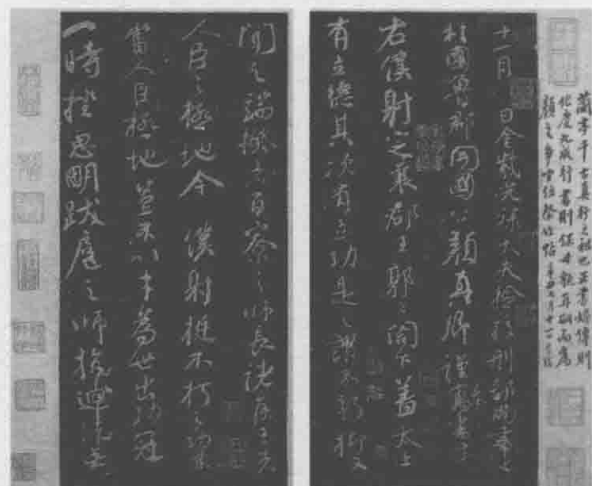 蘭亭千古真行之祖也
顏之爭坐位祭姪帖
十一月 日金紫光祿大夫檢校刑部尚書上
柱國魯郡開國公顏真卿謹奉書于
右僕射定襄郡王郭公閤下蓋太上
有立德其次有立功是之謂不朽抑又
聞之端揆者百寮之師長諸侯王者
人臣之極地今 僕射挺不朽之功業
當人臣極地豈不以才為世出功冠
一時挫思明跋扈之師抗迴紇無